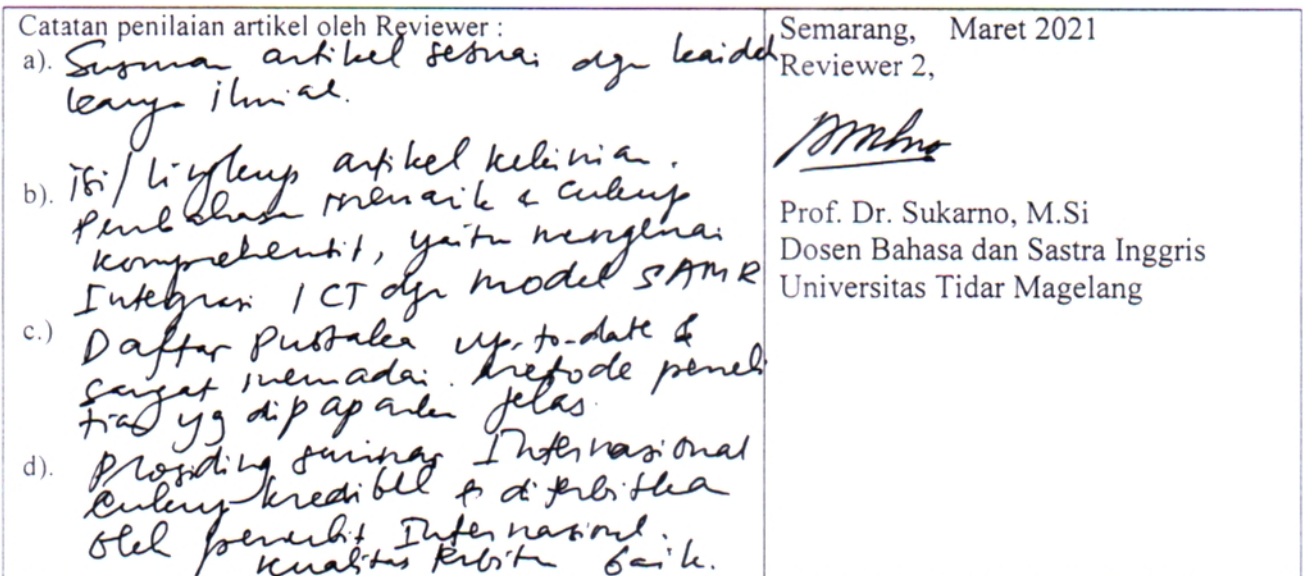 Catatan penilaian artikel oleh Reviewer :
a). Susunan artikel sesuai dgn kaidah
karya ilmiah.
b). isi/lingkup artikel kekinian.
Pembahasan menarik & cukup
komprehensif, yaitu mengenai
Integrasi ICT dgn model SAMR
c.) Daftar Pustaka up-to-date &
sangat memadai. Metode peneli
tian yg dipaparkan jelas.
d). Prosiding seminar Internasional
cukup kredibel & diterbitkan
oleh penerbit Internasional.
Kualitas terbitan baik.
Semarang, Maret 2021
Reviewer 2,
Prof. Dr. Sukarno, M.Si
Dosen Bahasa dan Sastra Inggris
Universitas Tidar Magelang